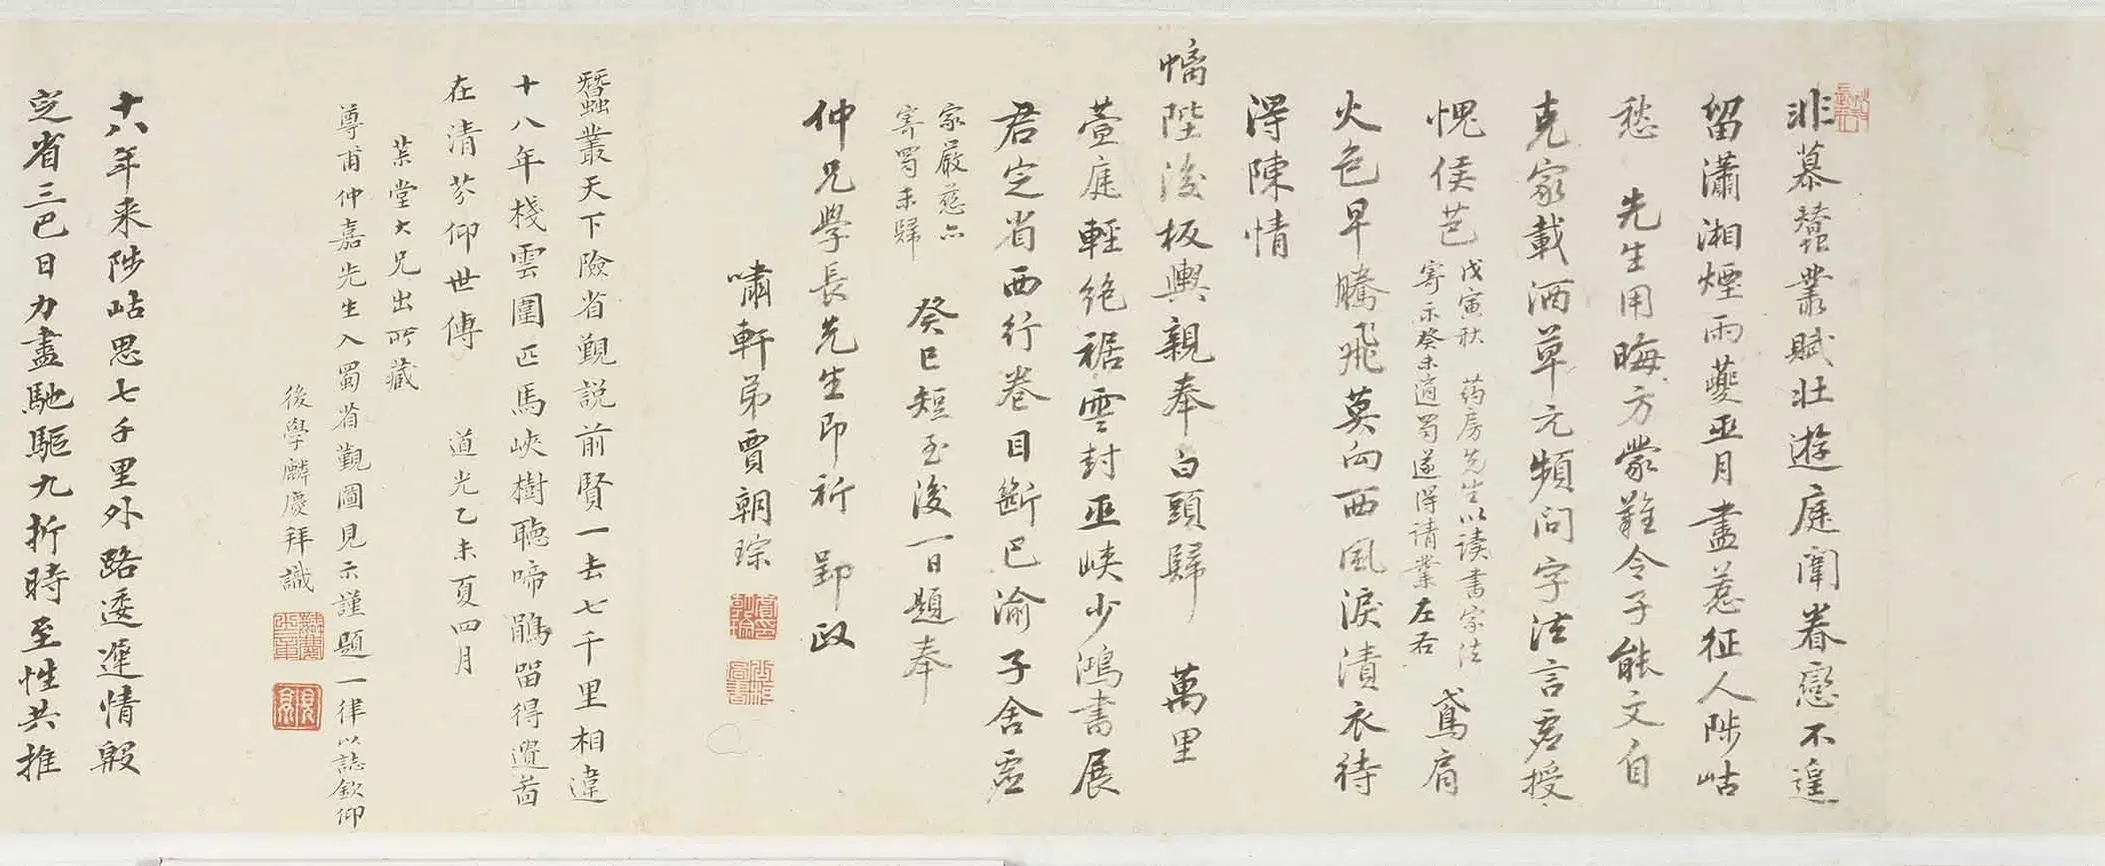 非慕蠶叢賦壯遊庭闈眷戀不遑
留瀟湘煙雨夔巫月盡惹征人陟岵
愁 先生用晦方蒙難令子能文自
克家載酒草元頻問字法言虛授
愧侯芭 戊寅秋 药房先生以读書家法
寄示癸未適蜀遂得請業左右 鳶肩
火色早騰飛莫向西風淚漬衣待
得陳情
陛後板輿親奉白頭歸 萬里
萱庭輕絶裾雲封巫峽少鴻書展
君定省西行卷目斷巴渝子舍虛
家嚴慈亦
寄蜀未歸 癸巳短至後一日題奉
仲兄學長先生即祈 郢政
嘯軒弟賈朝琮
蠶叢天下險省覲説前賢一去七千里相違
十八年棧雲圍匹馬峽樹聽啼鵑留得遺菑
在清芬仰世傳 道光乙未夏四月
棻堂大兄出所藏
尊甫仲嘉先生入蜀省觀圖見示謹題一律以誌欽仰
後學麟慶拜識
十八年来陟岵思七千里外路逶遲情殷
定省三巴日力盡馳驅九折時至性共推